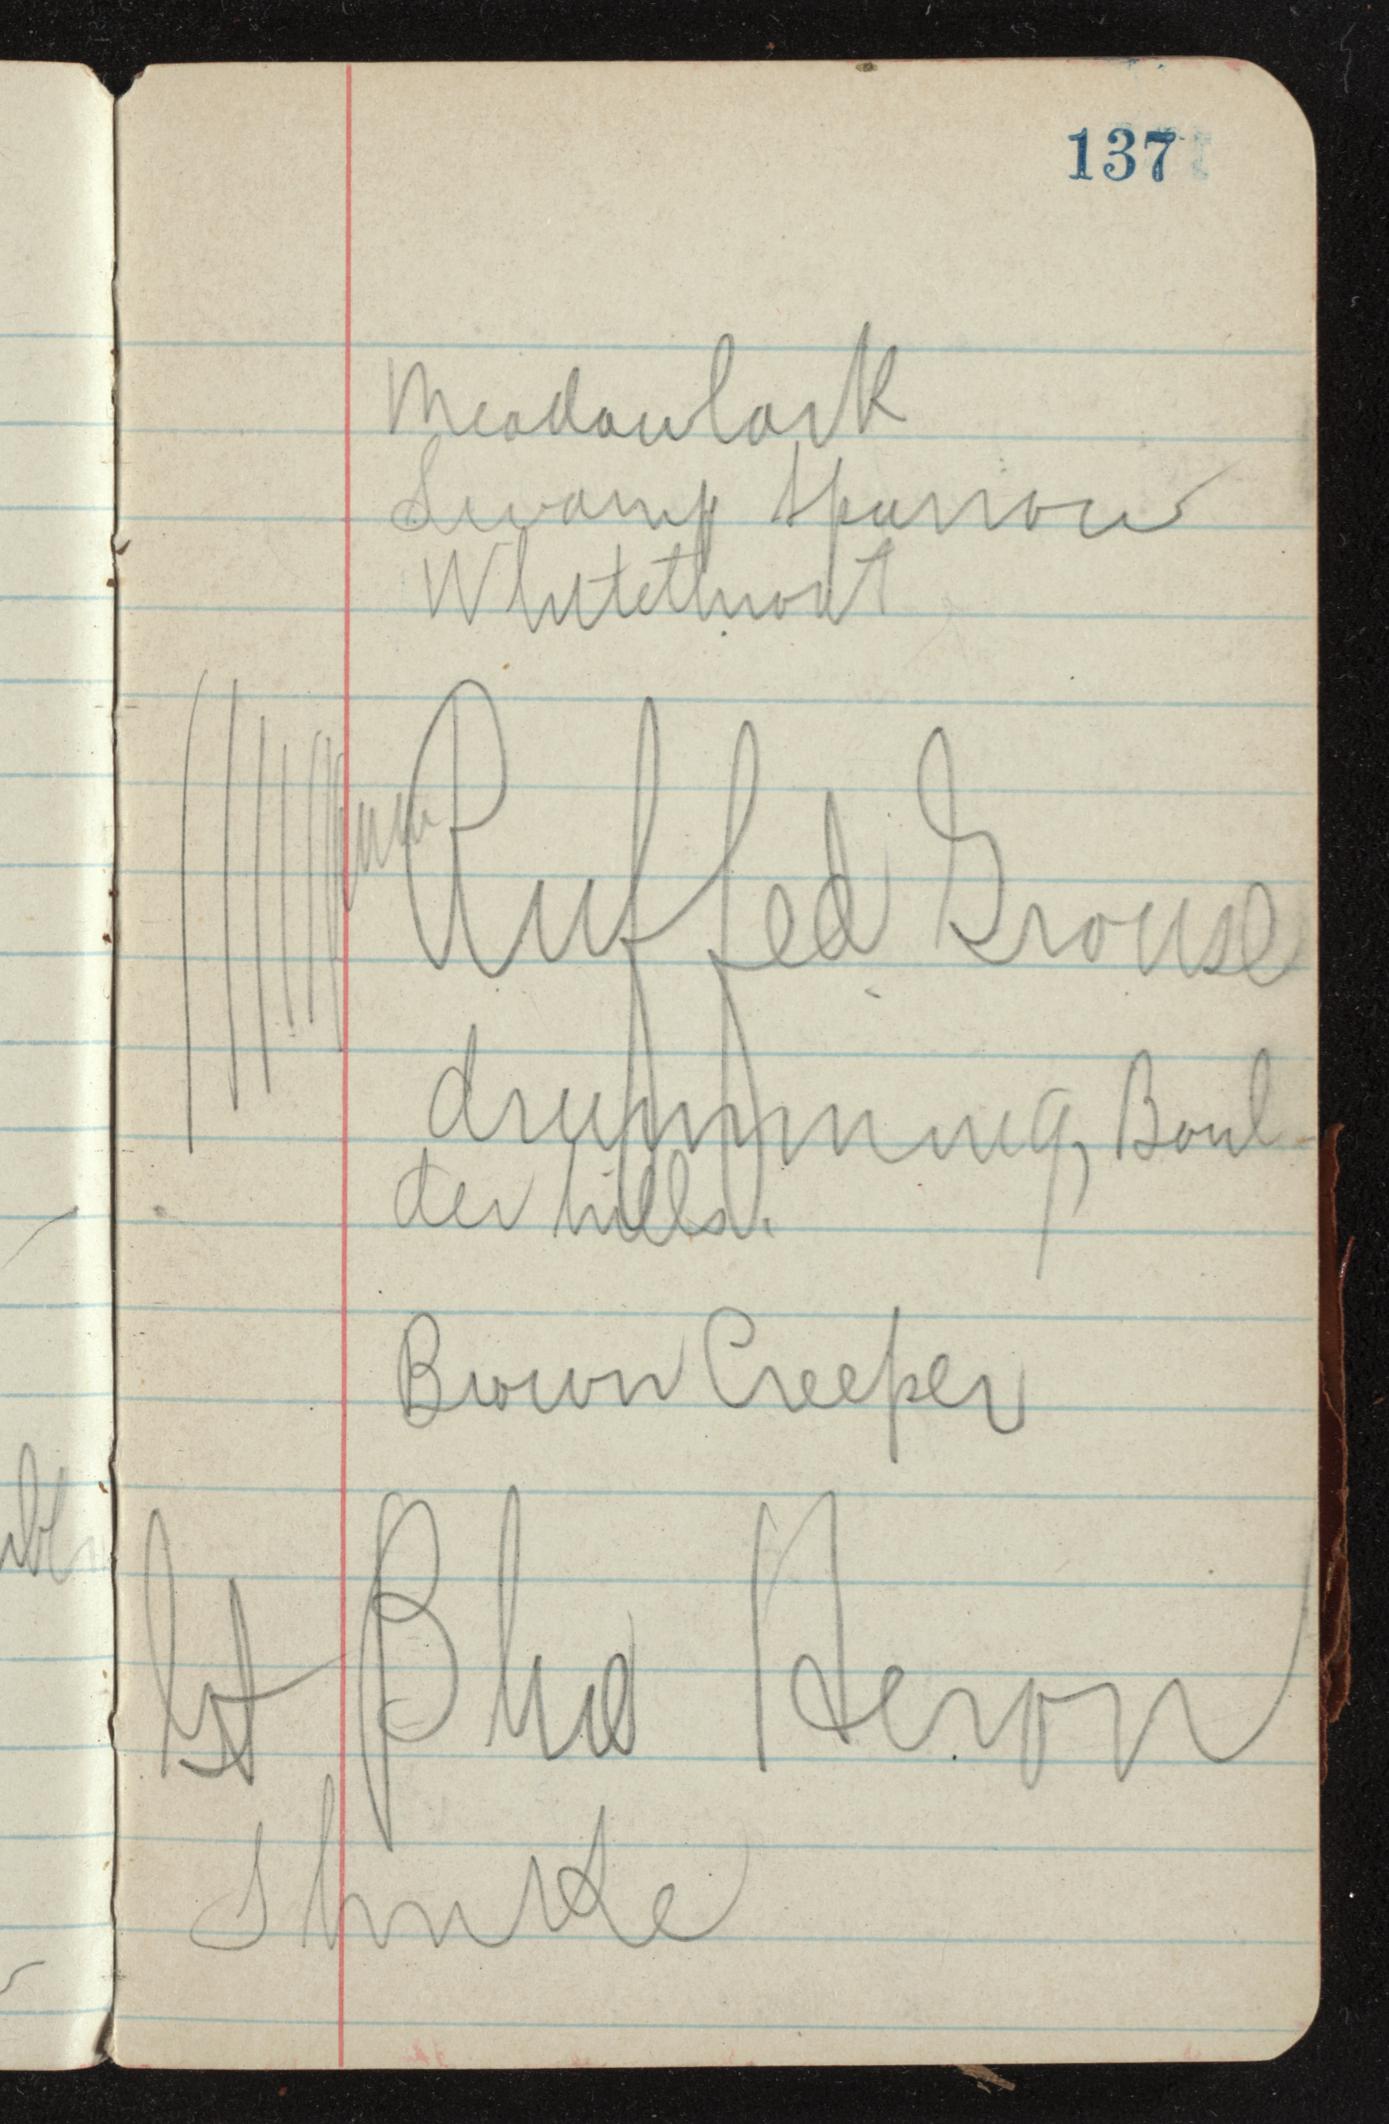 137
Meadowlark
Swamp Sparrow
Whitethroat
Ruffed Grouse
drumming, Boul-
der hills.
Brown Creeper
Gt Blue Heron
Shrike